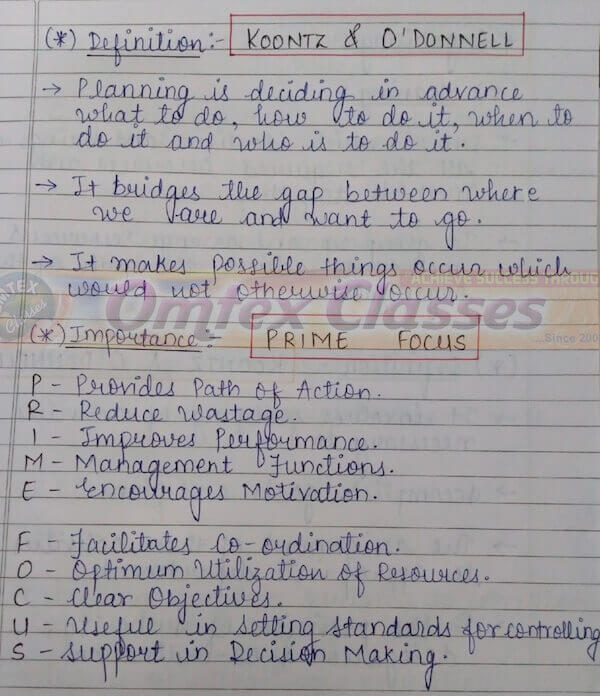 (*) Definition:- KOONTZ & O'DONNELL
→ Planning is deciding in advance
what to do, how to do it, when to
do it and who is to do it.
→ It bridges the gap between where
we are and want to go.
→ It makes possible things occur which
ACHIEVE SUCCESS THROUG
would not otherwise occur.
OMTEX
Classes
Omtex Classes
(*) Importance:- PRIME FOCUS
...Since 200
P - Provides Path of Action.
R - Reduce Wastage.
I - Improves Performance.
M - Management Functions.
E - Encourages Motivation.
F - Facilitates Co-ordination.
O - Optimum Utilization of Resources.
C - Clear Objectives.
U - Useful in setting standards for controlling
S - Support in Decision Making.